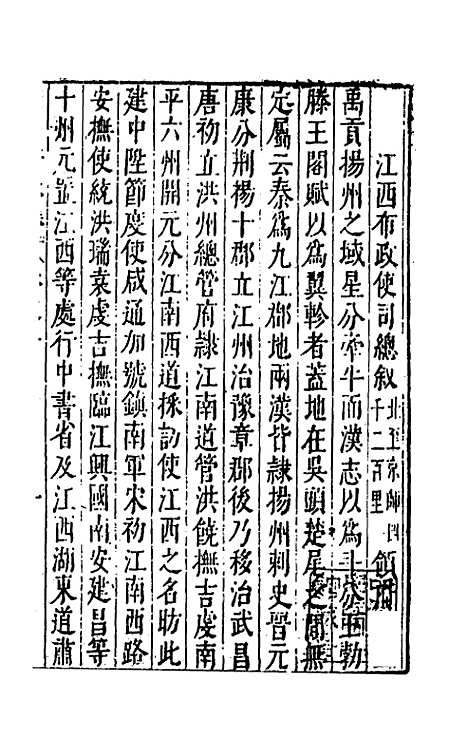 江西布政使司總叙北至京師四千二百里
禹貢揚州之域星分牽牛而漢志以爲斗分王勃
滕王閣賦以爲翼軫者蓋地在吳頭楚尾之間無
定屬云秦爲九江郡地兩漢皆隸揚州刺史晉元
康分荆楊十郡立江州治豫章郡後乃移治武昌
唐初立洪州總管府隷江南道管洪饒撫吉虔南
平六州開元分江南西道採訪使江西之名昉此
建中陞節度使咸通加號鎮南軍宋初江南西路
安撫使統洪瑞袁虔吉撫臨江興國南安建昌等
十州元置江西等處行中書省及江西湖東道肅